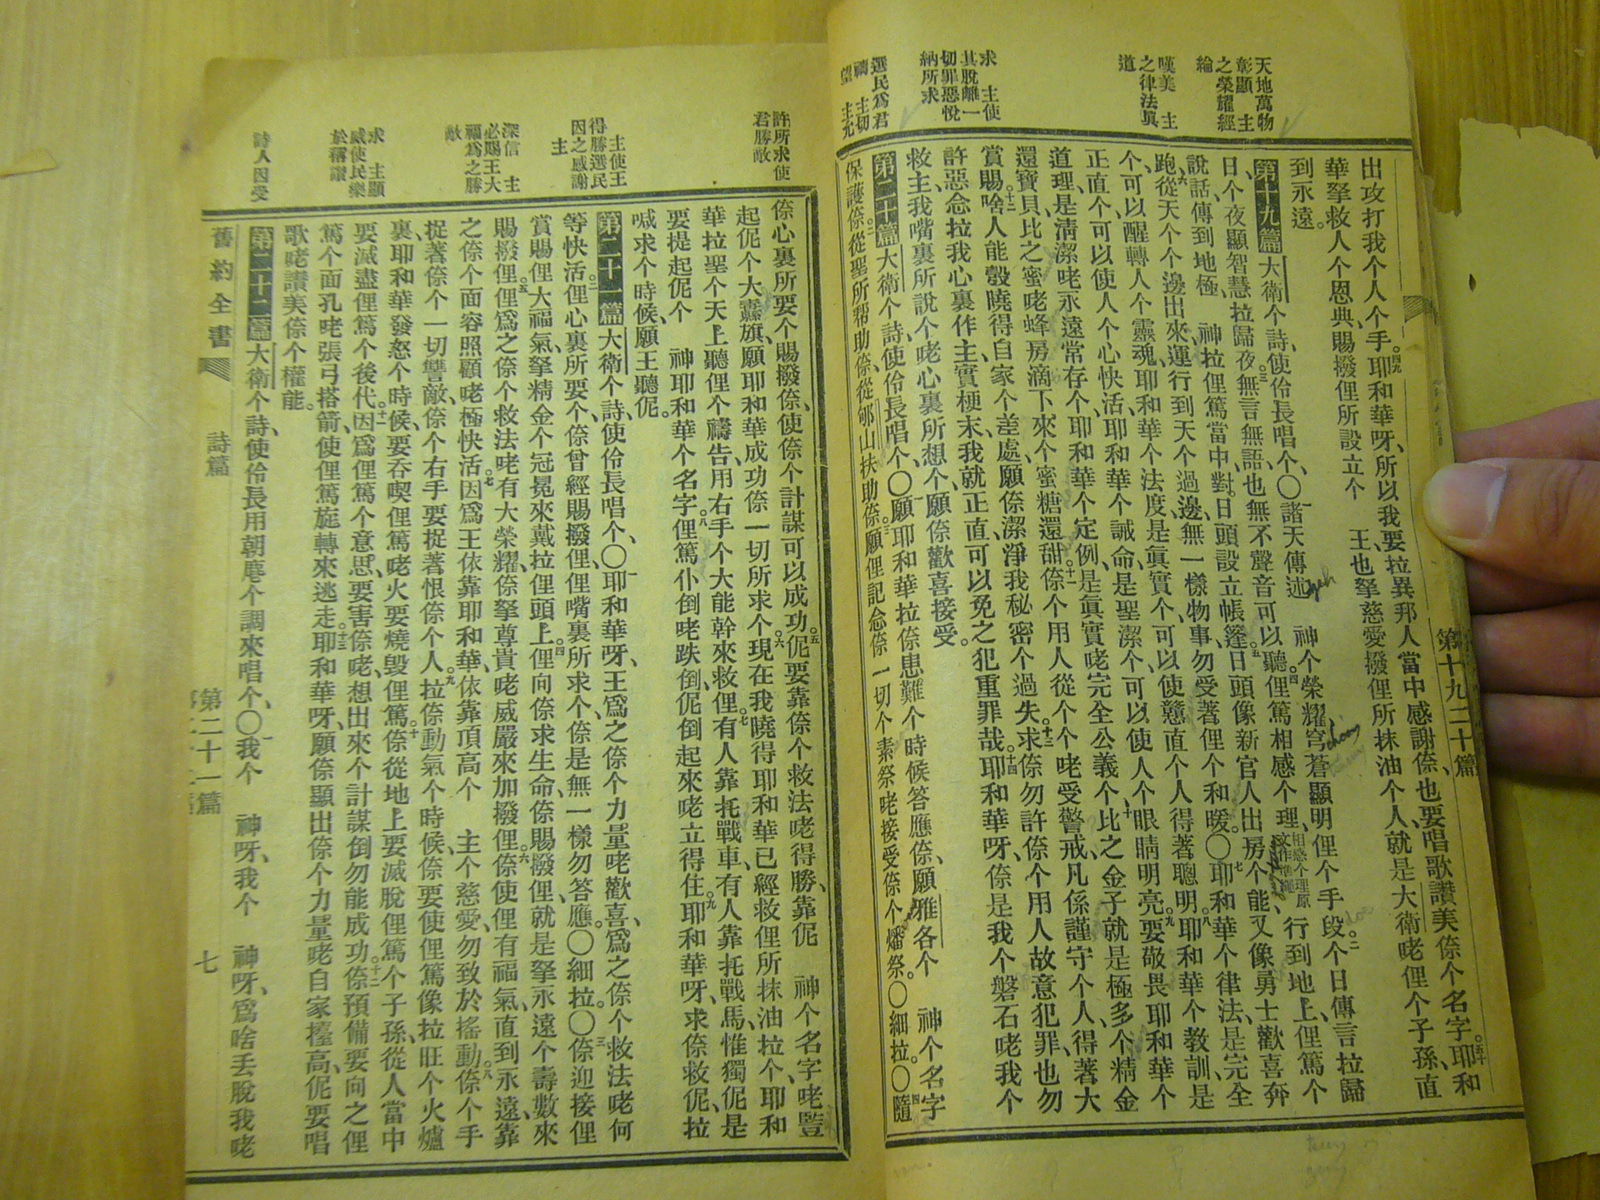 第十九二十篇
出攻打我个人个手。耶和華呀、所以我要拉異邦人當中感謝倷、也要唱歌讚美倷个名字。耶和
華拏救人个恩典、賜撥俚所設立个 王、也拏慈愛撥俚所抹油个人、就是大衛咾俚个子孫、直
到永遠。
天地萬物
彰顯 主
之榮耀經
綸
嘆美 主
之律法眞
道
求 主使
其脫離一
切罪惡悅
納所求
選民爲君
禱 主切
望 主允
第十九篇 大衛个詩、使伶長唱个、〇諸天傳述 神个榮耀、穹蒼顯明俚个手段。个日傳言拉歸
日、个夜顯智慧拉歸夜、無言無語、也無不聲音可以聽。俚篤相感个理、行到地上、俚篤个
說話傳到地極、 神拉俚篤當中、對日頭設立帳篷。日頭像新官人出房、个能、又像勇士歡喜奔
跑、從天个个邊出來、運行到天个過邊、無一樣物事勿受著俚个和暖。〇耶和華个律法、是完全
个、可以醒轉人个靈魂、耶和華个法度、是眞實个、可以使戇直个人得著聰明。耶和華个教訓、是
正直个、可以使人个心快活、耶和華个誡命、是聖潔个、可以使人个眼睛明亮。要敬畏耶和華个
道理、是清潔咾永遠常存个、耶和華个定例、是眞實咾完全公義个、比之金子、就是極多个精金
還寶貝、比之蜜咾蜂房滴下來个蜜糖還甜、倷个用人從个个咾受警戒、凡係謹守个人、得著大
賞賜。啥人能彀曉得自家个差處、願倷潔淨我秘密个過失。求倷勿許倷个用人故意犯罪、也勿
許惡念拉我心裏作主、實梗末、我就正直、可以免之犯重罪哉。耶和華呀、倷是我个磐石咾我个
救主、我嘴裏所說个咾心裏所想个、願倷歡喜接受。
第二十篇 大衛个詩、使伶長唱个、〇願耶和華拉倷患難个時候答應倷、願雅各个 神个名字
保護倷。從聖所幫助倷、從郇山扶助倷、願俚記念倷一切个素祭咾接受倷个燔祭。〇細拉。〇隨
許所求使
君勝敵
主使王
得勝選民
因之感謝
主
深信 主
必賜王大
福爲之勝
敵
求 主顯
威使民樂
於稱讚
詩人因受
倷心裏所要个賜撥倷、使倷个計謀可以成功。伲要靠倷个救法咾得勝、靠伲 神个名字咾豎
起伲个大纛旗、願耶和華成功倷一切所求个。現在我曉得耶和華已經救俚所抹油拉个、耶和
華拉聖个天上聽俚个禱告、用右手个大能幹來救俚。有人靠托戰車、有人靠托戰馬、惟獨伲是
要提起伲个 神耶和華个名字。俚篤仆倒咾跌倒、伲倒起來咾立得住。耶和華呀、求倷救伲、拉
喊求个時候、願王聽伲。
第二十一篇 大衛个詩、使伶長唱个、〇耶和華呀、王爲之倷个力量咾歡喜、爲之倷个救法咾何
等快活。俚心裏所要个、倷曾經賜撥俚、俚嘴裏所求个、倷是無一樣勿答應。〇細拉。〇倷迎接俚
賞賜俚大福氣、拏精金个冠冕來戴拉俚頭上。俚向倷求生命、倷賜撥俚、就是拏永遠个壽數來
賜撥俚。俚爲之倷个救法咾有大榮耀、倷拏尊貴咾威嚴來加撥俚。倷使俚有福氣、直到永遠、靠
之倷个面容照顧咾、極快活。因爲王依靠耶和華、依靠頂高个 主个慈愛、勿致於搖動。倷个手
捉著倷个一切讐敵、倷个右手要捉著恨倷个人。拉倷動氣个時候、倷要使俚篤像拉旺个火爐
裏、耶和華發怒个時候、要吞喫俚篤咾火要燒毀俚篤。倷從地上要滅脫俚篤个子孫、從人當中
要滅盡俚篤个後代。因爲俚篤个意思、要害倷咾、想出來个計謀倒勿能成功。倷預備要向之俚
篤个面孔咾張弓搭箭、使俚篤旋轉來逃走。耶和華呀、願倷顯出倷个力量咾自家擡高、伲要唱
歌咾讚美倷个權能。
第二十二篇 大衛个詩、使伶長用朝麀个調來唱个、〇我个 神呀、我个 神呀、爲啥丟脫我咾
舊約全書 詩篇 第二十一篇 七